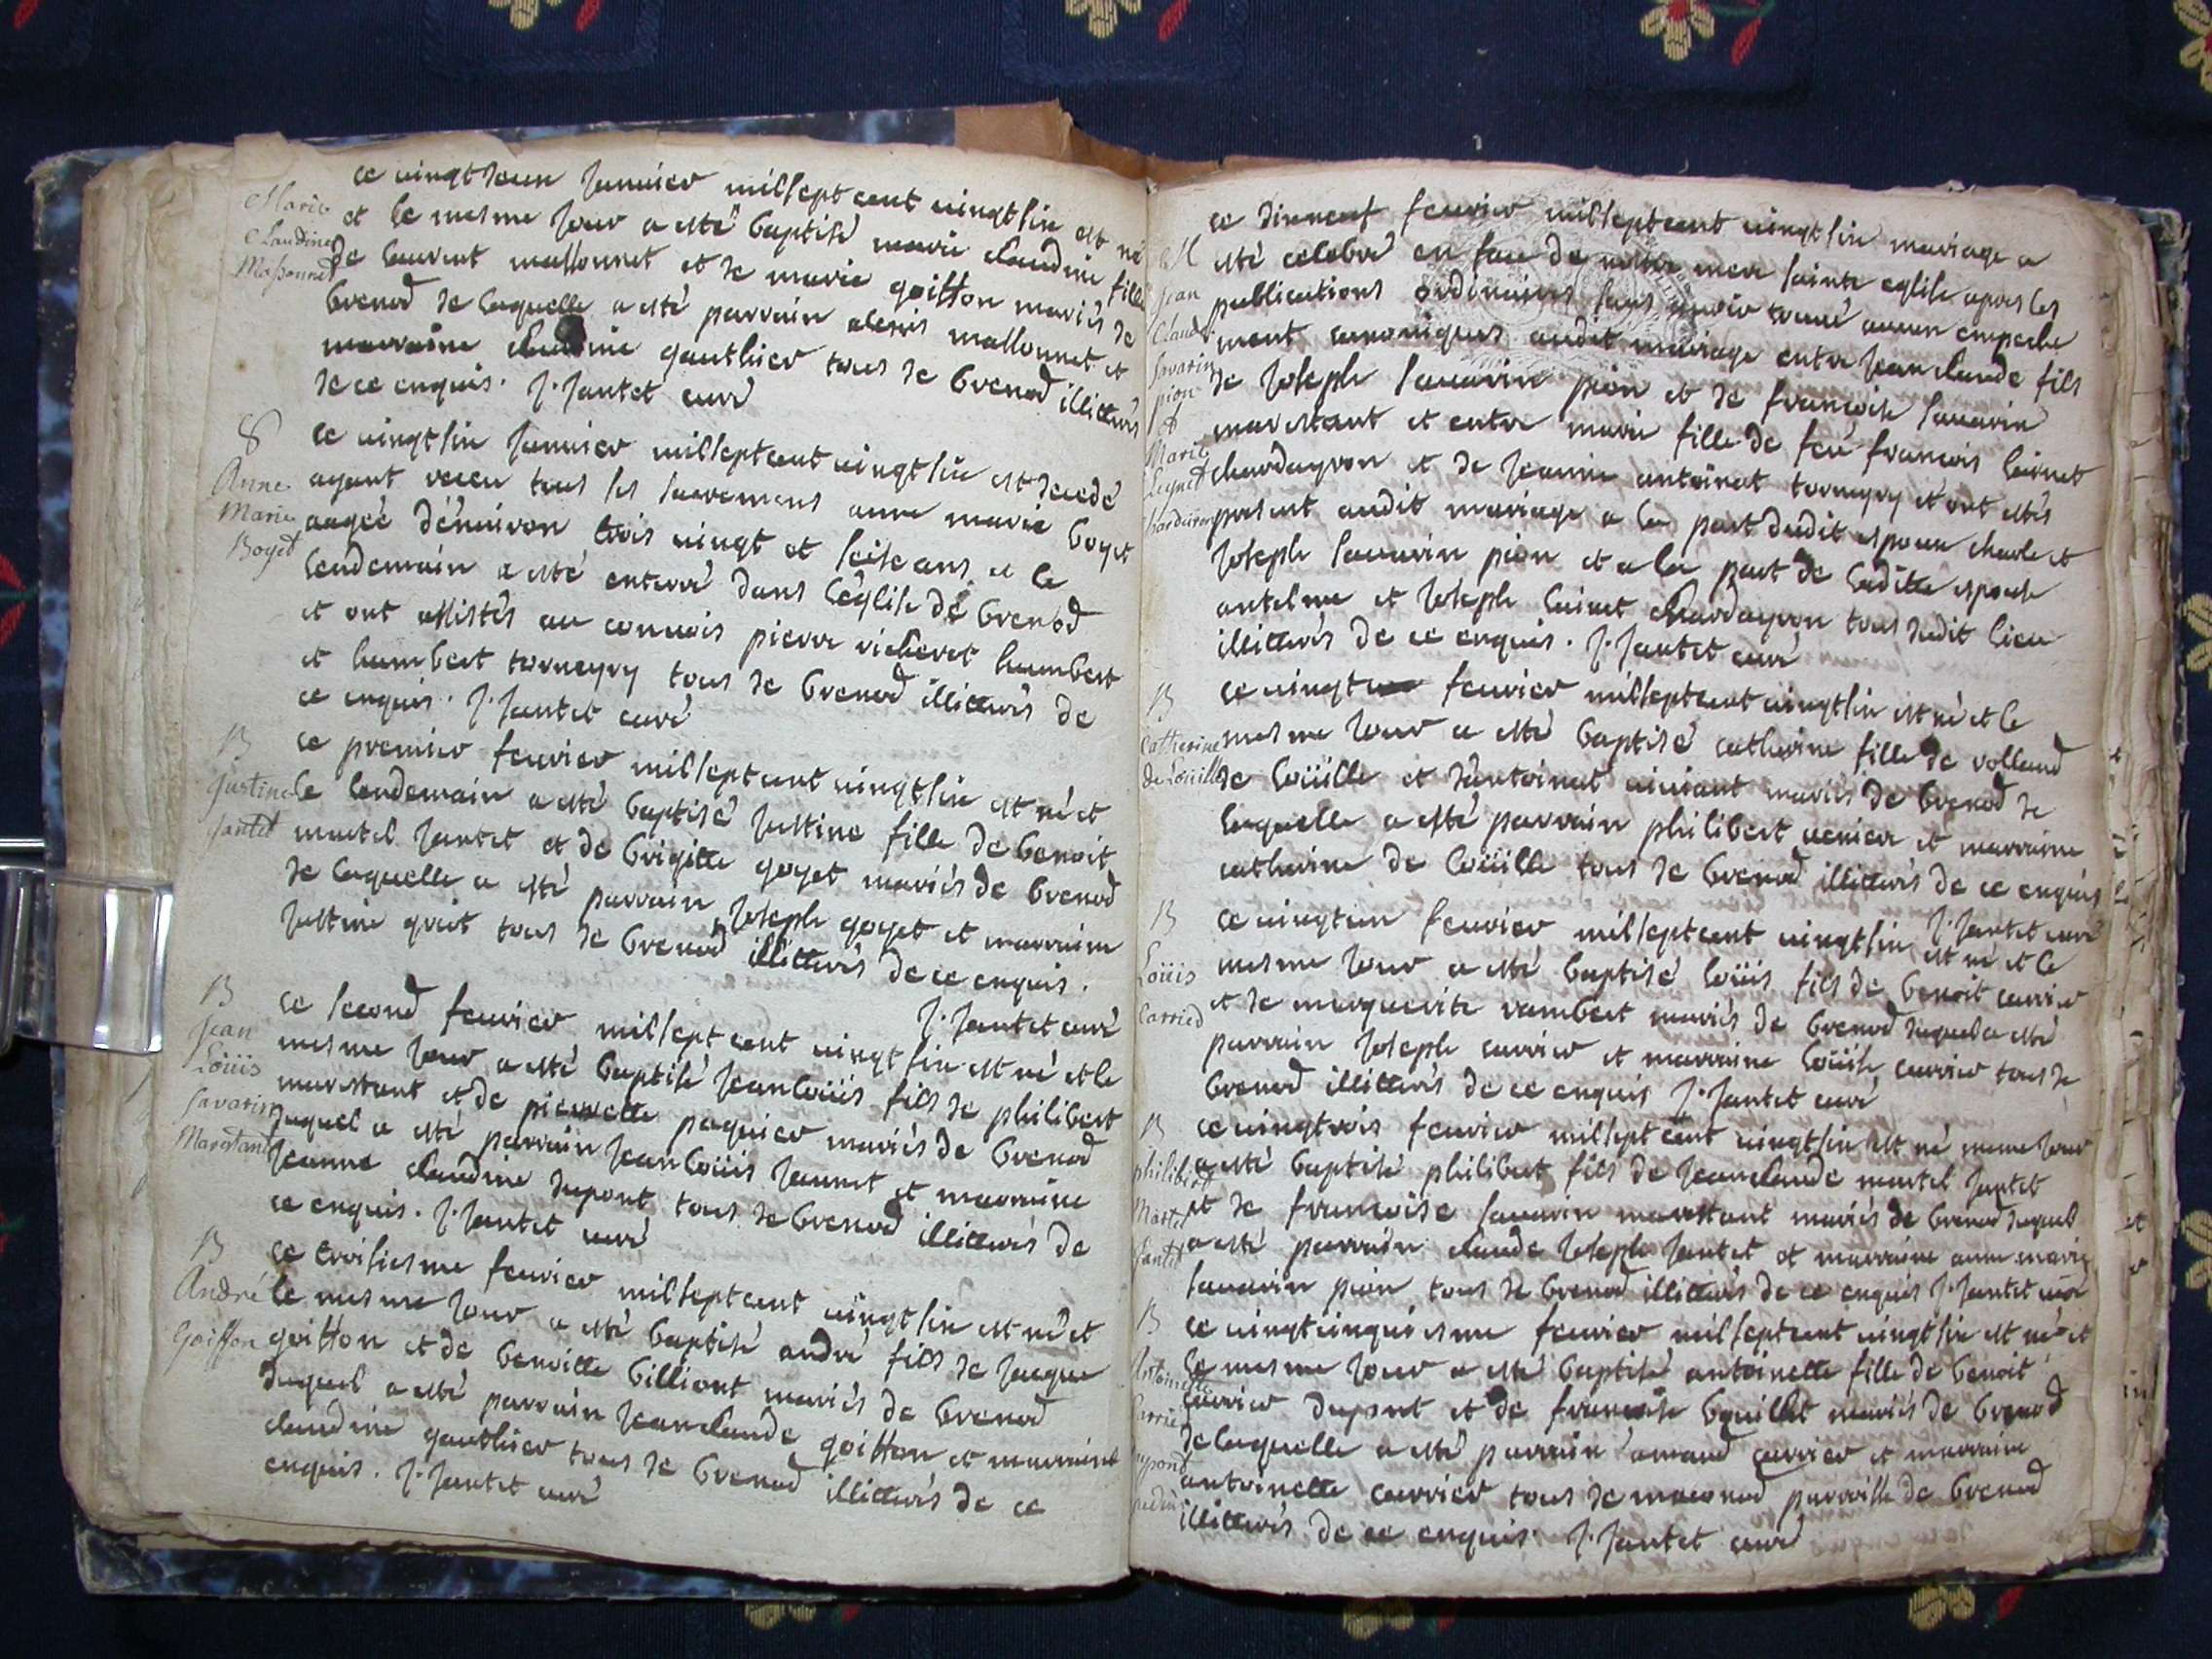 Marie
Claudine
Massonnet
ce vingt deux Janvier mil sept cent vingt six est né
et le mesme Jour a esté baptisé marie claudine fille
de laurent massonnet et de marie goiffon mariés de
brenod de laquelle a esté parrain alexis massonnet et
marraine claudine gauthier tous de brenod illitterés
de ce enquis. J. Jantet curé
S
Anne
Marie
Boyet
ce vingt six Janvier mil sept cent vingt six est decedé
ayant receu tous les sacremens anne marie boyet
aagée d'environ trois vingt et seise ans et le
lendemain a esté enterré dans l'église de brenod
et ont assistés au convois pierre richerot humbert
et humbert torneyry tous de brenod illitterés de
ce enquis. J. Jantet curé
B
Justine
Jantet
ce premier fevrier mil sept cent vingt six est né et
le lendemain a esté baptisé Justine fille de benoit
martel Jantet et de brigitte goyet mariés de brenod
de laquelle a esté parrain Joseph goyet et marraine
Justine tous de brenod illitterés de ce enquis.
J. Jantet curé
B
Jean
Loüis
Savarin
Marestant
ce second fevrier mil sept cent vingt six est né et le
mesme Jour a esté baptisé Jean Loüis fils de philibert
marestant et de pierrette paquier mariés de brenod
duquel a esté parrain Jean Loüis Jannet et marraine
Jeanne claudine dupont tous de brenod illitterés de
ce enquis. J. Jantet curé
B
André
Goiffon
ce troisiesme fevrier mil sept cent vingt six est né et
le mesme Jour a esté baptisé andré fils de Jacque
goiffon et de benoitte billiont mariés de brenod
duquel a esté parrain Jean claude goiffon et marraine
claudine gauthier tous de brenod illitterés de ce
enquis. J. Jantet curé
M
Jean
Claude
Savarin
pion
et
Marie
ce dixneuf fevrier mil sept cent vingt six mariage a
esté celebré en face de notre mere sainte eglise apres les
publications ordinaires sans avoir trouvé aucun empeche
ment canoniques audit mariage entre Jean claude fils
de Joseph savarin pion et de francoise savarin
marestant et entre marie fille de feu francois
chardeyron et de Jeanne antoinet torneyry et ont estés
present audit mariage a la part dudit espoux charle et
Joseph savarin pion et a la part de laditte espouse
antelme et Joseph chardeyron tous dudit lieu
illitterés de ce enquis. J. Jantet curé
B
Catherine
de Loüille
ce vingt fevrier mil sept cent vingt six est né et le
mesme Jour a esté baptisé catherine fille de rolland
de loüille et d'antoinet mariés de brenod de
laquelle a esté parrain philibert et marraine
catherine de loüille tous de brenod illitterés de ce enquis
J. Jantet curé
B
Loüis
Carrier
ce vingt un fevrier mil sept cent vingt six est né et le
mesme Jour a esté baptisé loüis fils de benoit carrier
et de marguerite rambert mariés de brenod duquel a esté
parrain Joseph carrier et marraine loüise carrier tous de
brenod illitterés de ce enquis J. Jantet curé
B
philibert
Martel
Jantet
ce vingtrois fevrier mil sept cent vingt six est né meme Jour
a esté baptisé philibert fils de Jean claude martel Jantet
et de francoise savarin marestant mariés de brenod duquel
a esté parrain claude Joseph Jantet et marraine anne marie
savarin pion tous de brenod illitterés de ce enquis J. Jantet curé
B
Antoinette
Carrier
Dupond
ce vingt cinquiesme fevrier mil sept cent vingt six est né et
le mesme Jour a esté baptisé antoinette fille de benoit
carrier dupont et de francoise mariés de brenod
de laquelle a esté parrain amand carrier et marraine
antoinette carrier tous de parroisse de brenod
illitterés de ce enquis J. Jantet curé